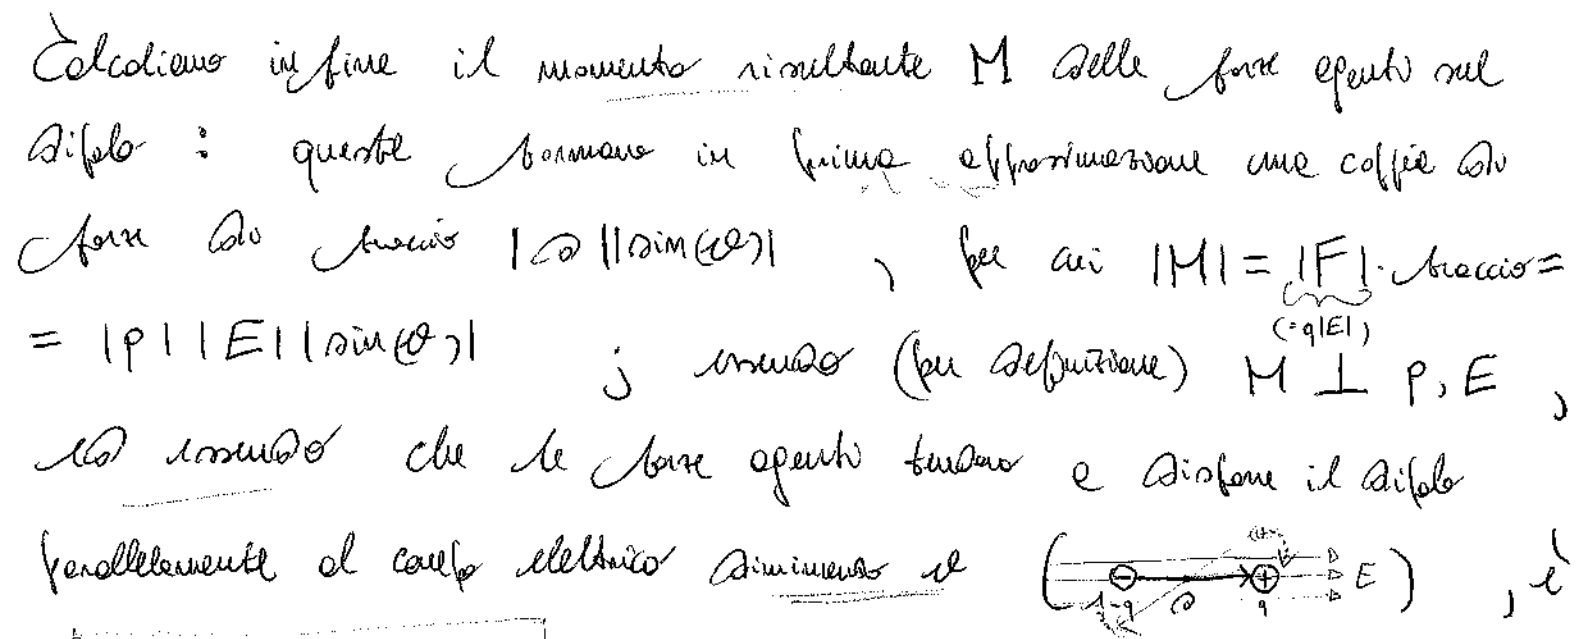 Calcoliamo infine il momento risultante M delle forze agenti sul
dipolo : queste formano in prima approssimazione una coppia di
forze di braccio |d||sin(θ)| , per cui |M| = |F| · braccio =
(=q|E|)
= |p||E||sin(θ)| ; essendo (per definizione) M ⊥ p, E ,
ed essendo che le forze agenti tendono a disporre il dipolo
parallelamente al campo elettrico diminuendo θ ( - + E ) , è
-q d q